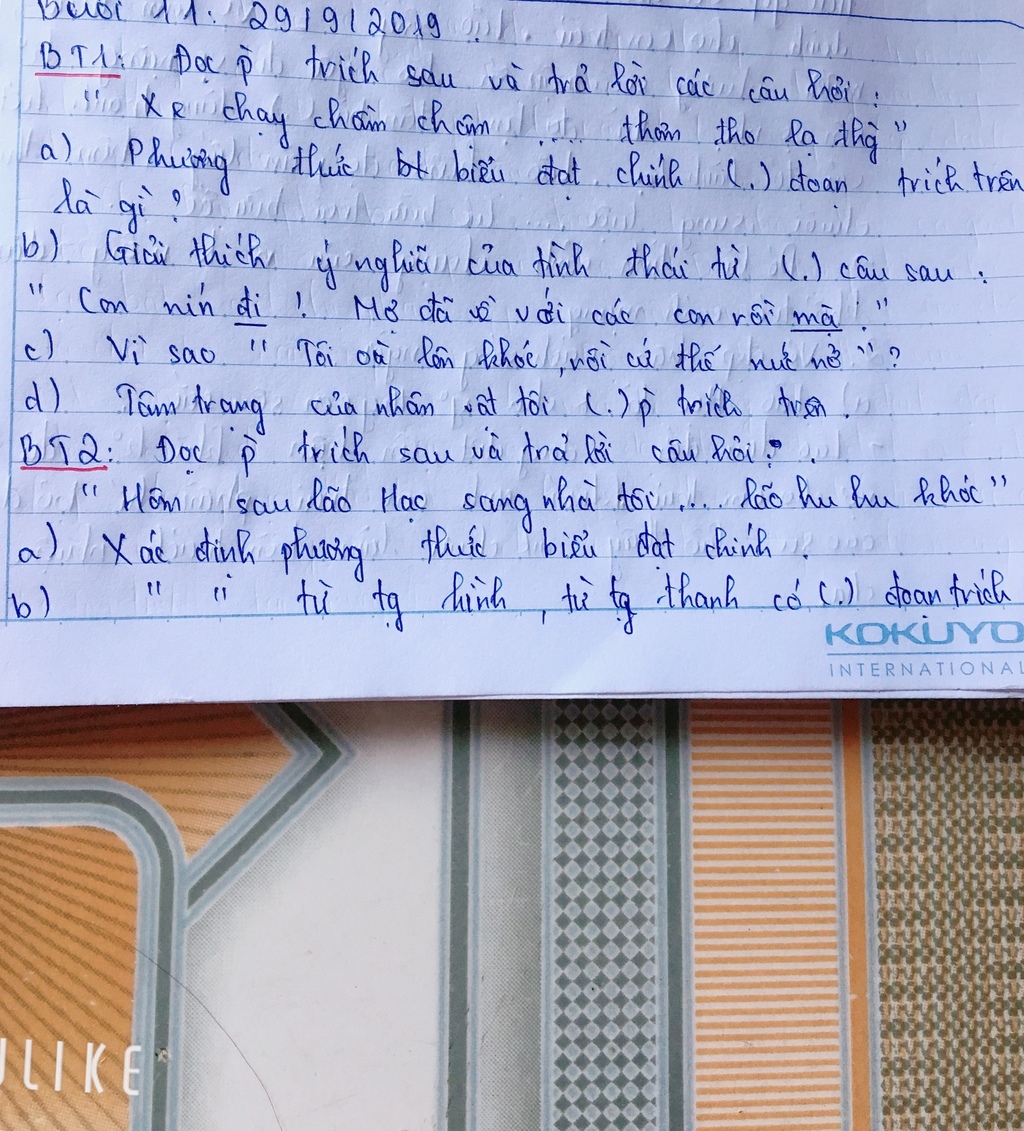 Buổi 11: 29/9/2019.
BT1: Đọc p̀ trích sau và trả lời các câu hỏi:
" Xe chạy chầm chậm .... thơm tho lạ thg̀ "
a) Phương thức bt biểu đạt chính (.) đoạn trích trên
là gì?
b) Giải thích ý nghĩa của tình thái từ (.) câu sau:
" Con nín đi ! Mợ đã về với các con rồi mà ! "
c) Vì sao " Tôi oà lên khóc, rồi cứ thế nức nở "?
d) Tâm trạng của nhân vật tôi (.) p̀ trích trên.
BT2: Đọc p̀ trích sau và trả lời câu hỏi:
" Hôm sau lão Hạc sang nhà tôi .... lão hu hu khóc "
a) Xác định phương thức biểu đạt chính.
b) " " từ tg hình, từ tg thanh có (.) đoạn trích
KOKUYO
INTERNATIONAL
ULIKE